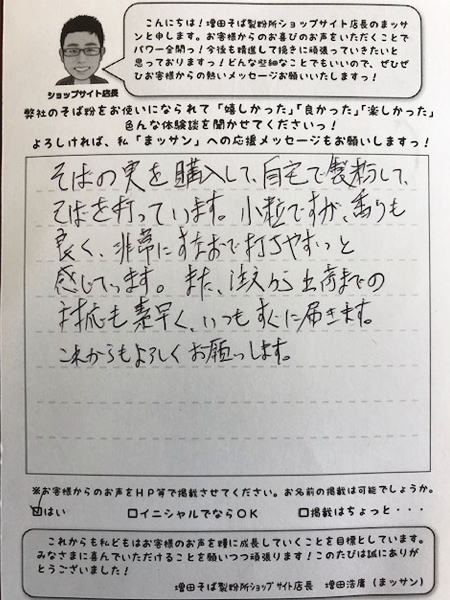 こんにちは！増田そば製粉所ショップサイト店長のまッサ
ンと申します。お客様からのお喜びのお声をいただくことで
パワー全開っ！今後も精進して挽きに頑張っていきたいと
思っておりますっ！どんな些細なことでもいいので、ぜひぜ
ひお客様からの熱いメッセージお願いいたしますっ！
ショップサイト店長
弊社のそば粉をお使いになられて「嬉しかった」「良かった」「楽しかった」
色んな体験談を聞かせてくださいっ！
よろしければ、私「まッサン」への応援メッセージもお願いしますっ！
そばの実を購入して、自宅で製粉して、
そばを打っています。小粒ですが、香りも
良く、非常にすなおで打ちやすいと
感じてます。また、注文から出荷までの
対応も素早く、いつもすぐに届きます。
これからもよろしくお願いします。
※お客様からのお声をHP等で掲載させてください。お名前の掲載は可能でしょうか。
☑はい □イニシャルでならOK □掲載はちょっと・・・
これからも私どもはお客様のお声を糧に成長していくことを目標としています。
みなさまに喜んでいただけることを願いつつ頑張ります！このたびは誠にありが
とうございました！
増田そば製粉所ショップサイト店長 増田浩庸（まッサン）